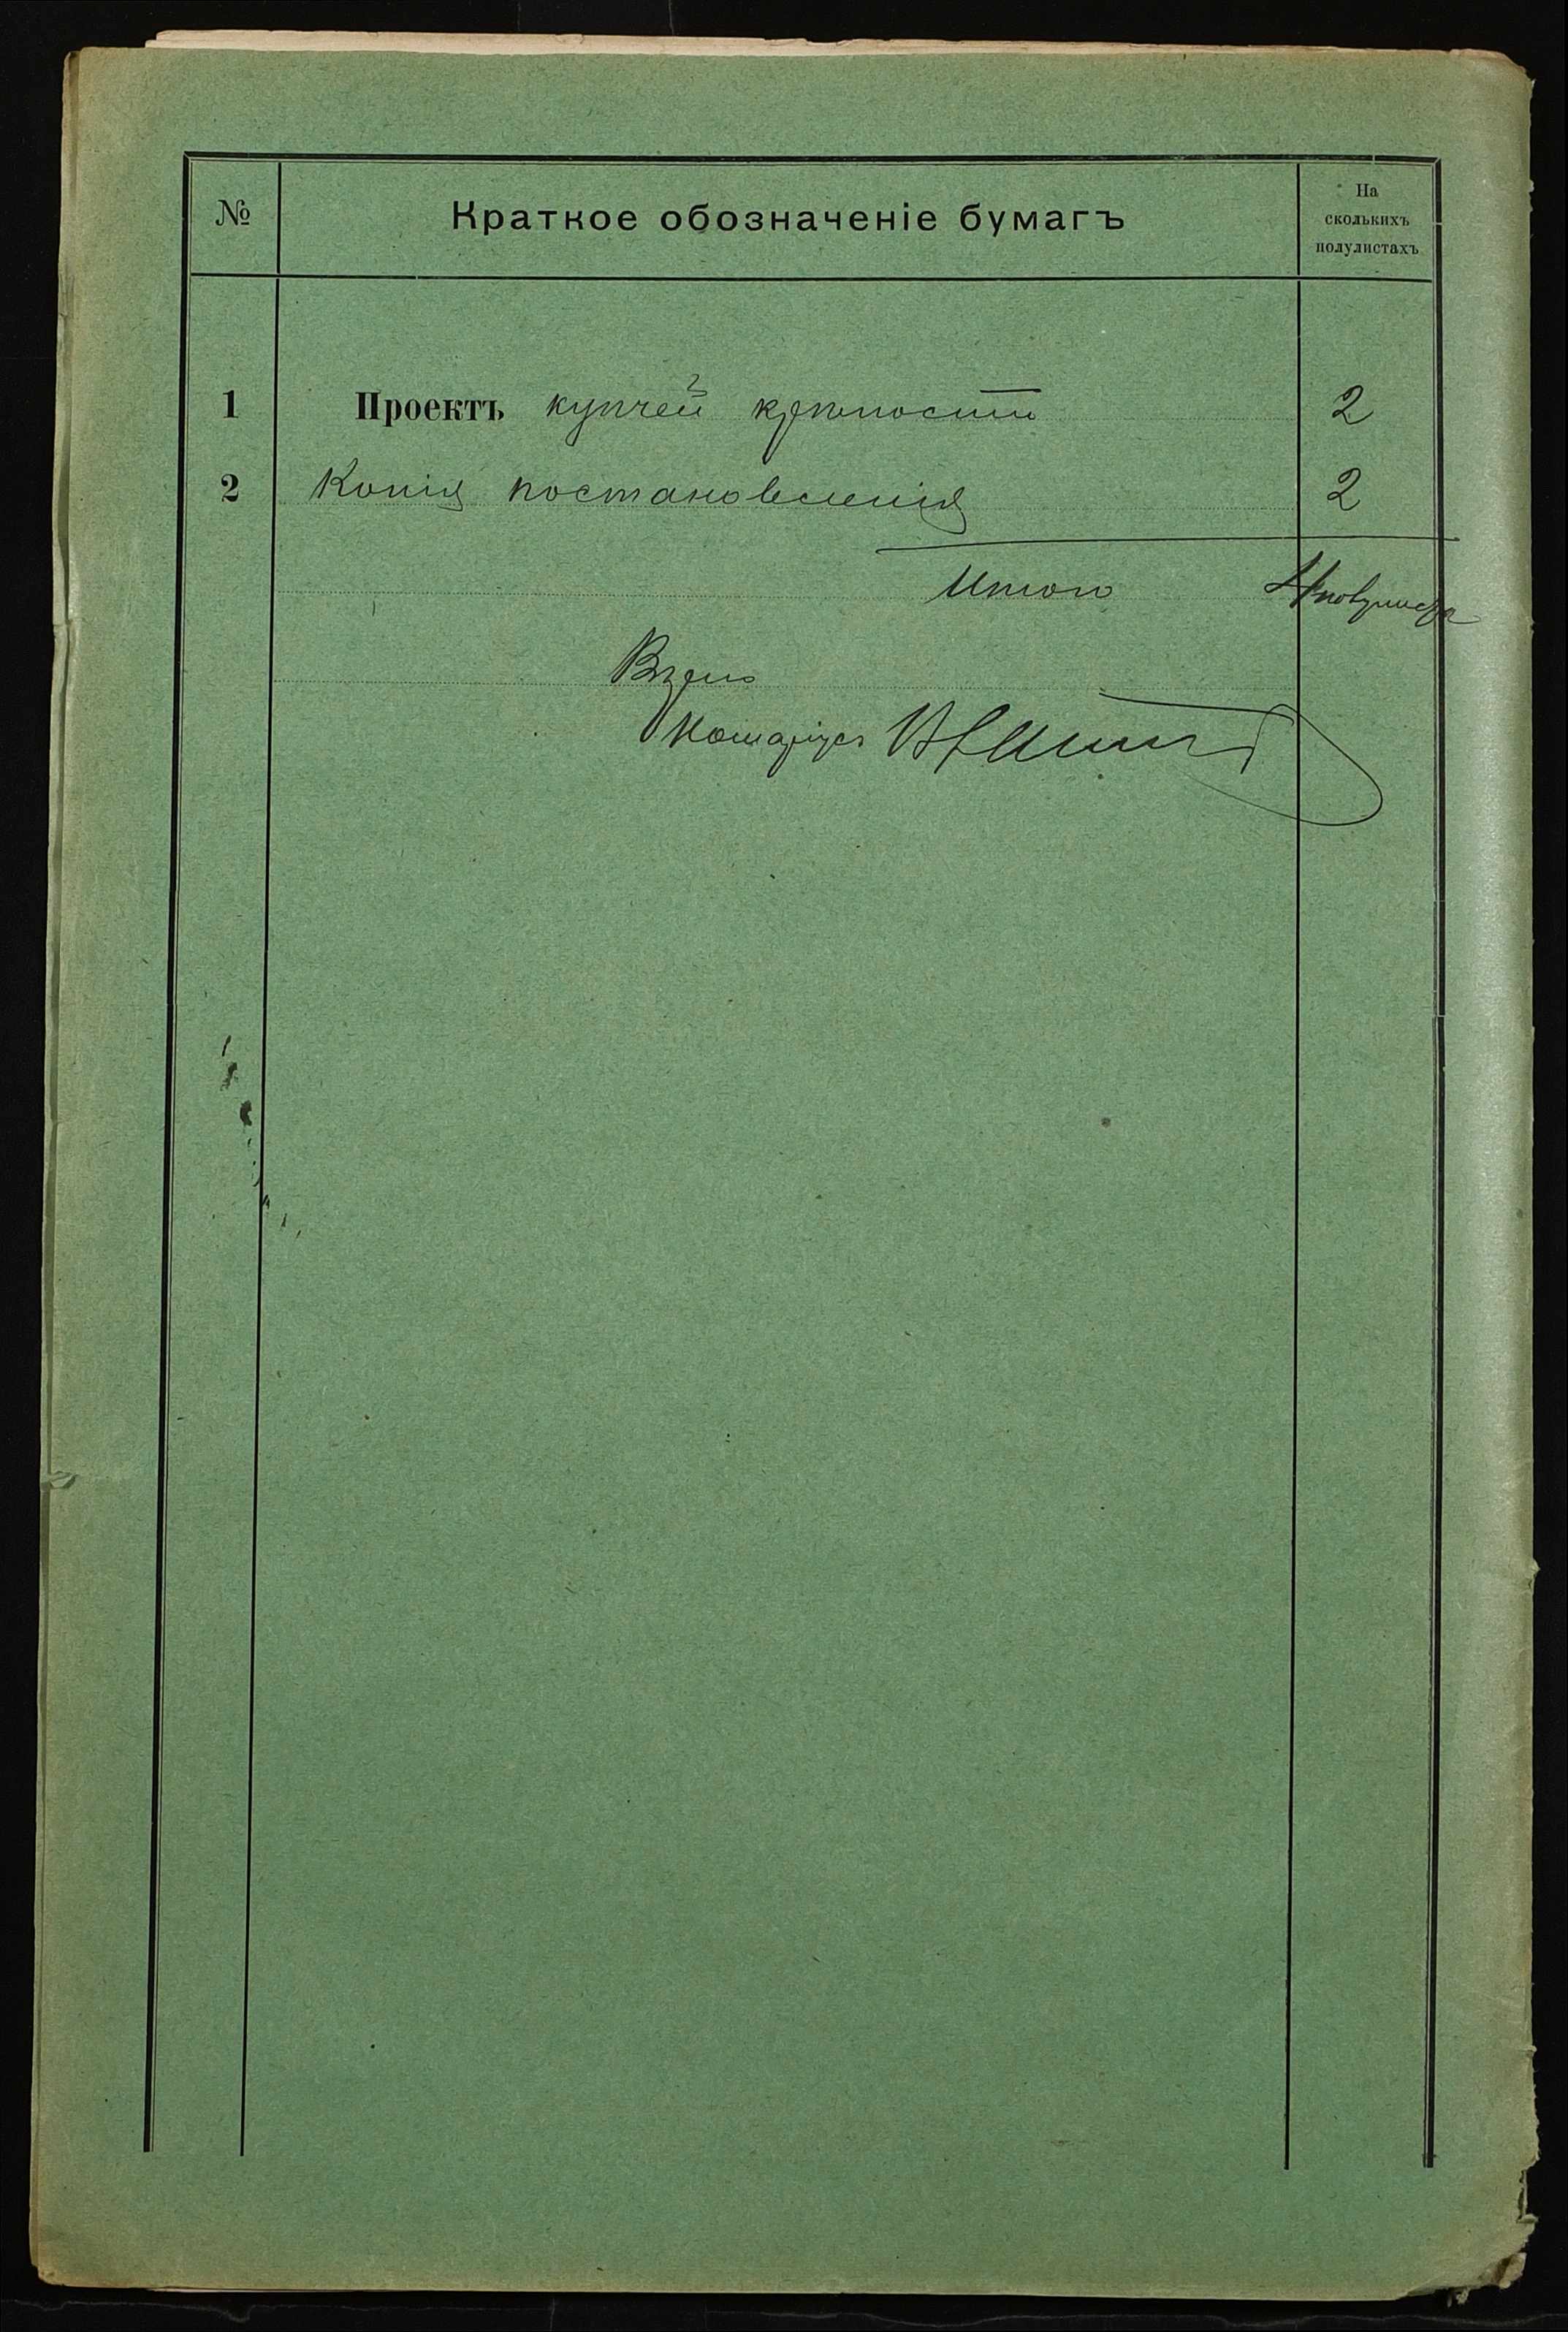 № Краткое обозначеніе бумагъ На
сколькихъ
полулистахъ
1 Проектъ купчей крѣпости 2
2 Копія постановленія 2
Итого 4 полулиста
Вѣрно
Нотаріусъ